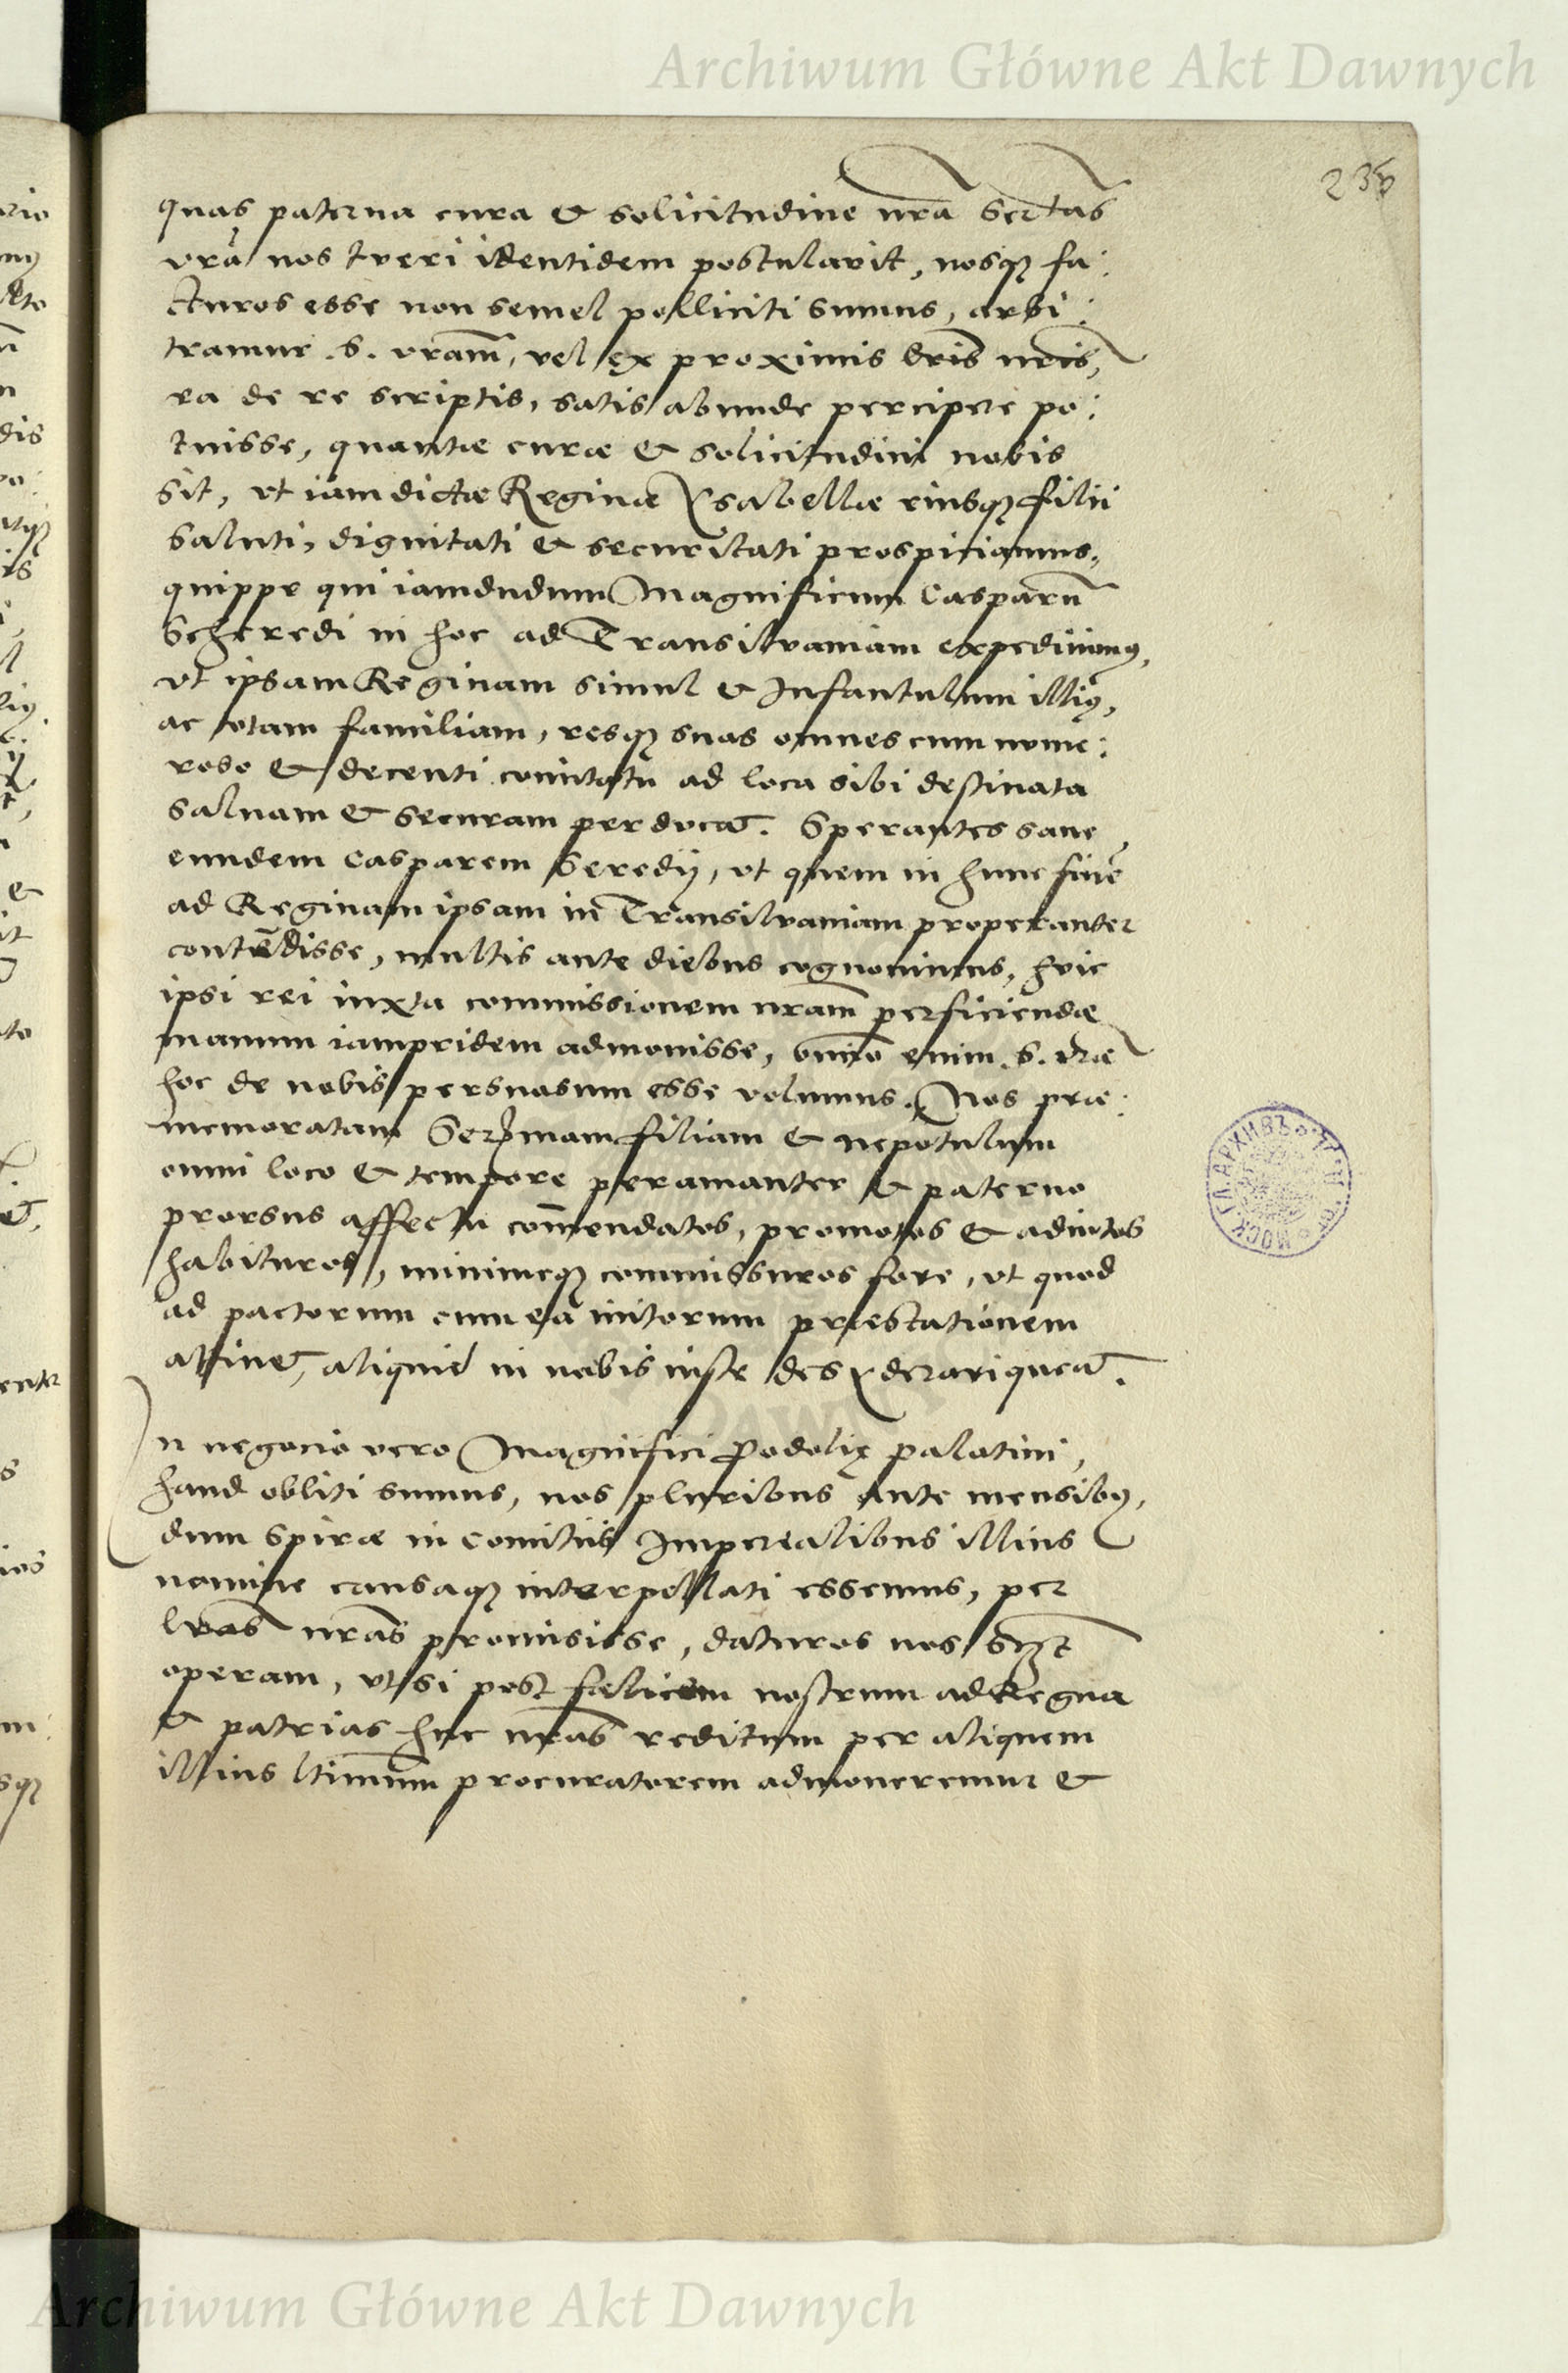 Archiwum Główne Akt Dawnych
235
quas paterna cura & solicitudine nr̄a Sertas
vr̄a nos tueri identidem postulavit, nosq; fa:
cturos esse non semel polliciti sumus, arbi:
tramur .S. vram̄, vel ex proximis lr̄is nr̄is,
ea de re scriptis, satis abunde percipere po:
tuisse, quantæ curæ & solicitudini nobis
sit, ut iam dictæ Reginæ Ysabellæ eiusq; filii
saluti, dignitati & securitati prospiciamus,
quippe qui iamdudum Magnificum Casparū
Scheredi in hoc ad Transilvaniam expedivimus,
ut ipsam Reginam simul & Infantulum illius,
ac totam familiam, resq; suas omnes cum nume:
roso & decenti comitatu ad loca sibi destinata
salvam & securam perducat. Sperantes sane,
eundem Casparem Seredy, ut quem in hunc finē
ad Reginam ipsam in Transilvaniam properanter
contēdisse, multis ante diebus cognovimus, huic
ipsi rei iuxta commissionem nram̄ perficiendæ
manum iampridem admovisse, omnino enim .S. vræ
hoc de nobis persuasum esse volumus. Nos præ:
memoratam Serm̄am filiam & nepotulum
omni loco & tempore peramanter & paterno
prorsus affectu com̄endatos, promotos & adiutos
habituros, minimeq; commissuros fore, ut quod
ad pactorum cum ea initorum præstationem
attinet, aliquid in nobis iuste desyderari queat.
In negocio vero Magnifici Podoliæ palatini,
haud obliti sumus, nos pluribus ante mensibus,
dum Spiræ in comitiis Imperialibus illius
nomine causaq; interpellati essemus, per
lr̄as nr̄as promisisse, daturos nos
operam, ut si post fælicem nostrum ad Regna
& patrias huc nr̄as reditum per aliquem
illius ltimum̄ procuratorem admoneremur &
Archiwum Główne Akt Dawnych